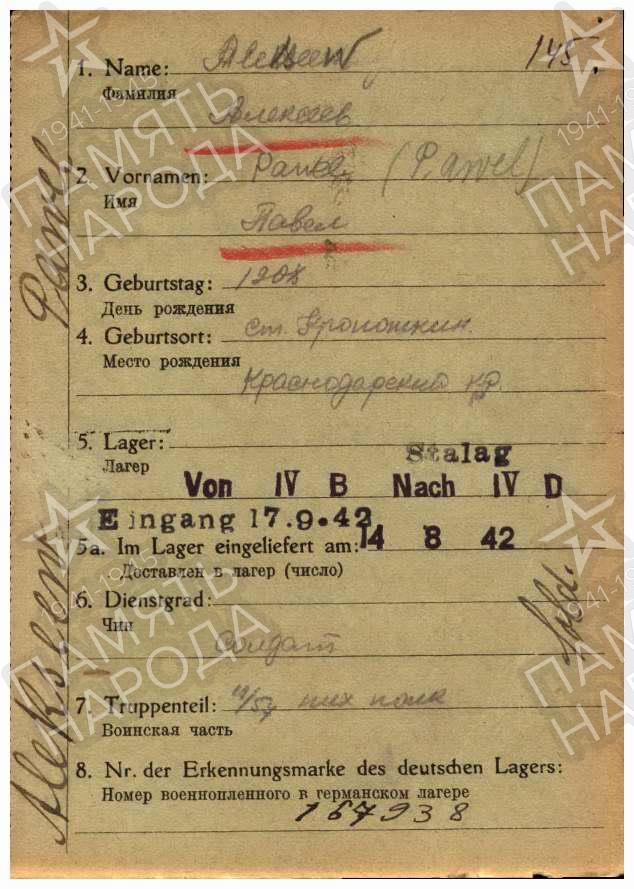 145
1. Name: Alekseew
Фамилия
Алексеев
2. Vornamen: Pawel (Pawel)
Имя
Павел
3. Geburtstag: 1908
День рождения
4. Geburtsort: ст. Кропоткин
Место рождения
Краснодарский кр.
5. Lager:
Лагер
Stalag
Von IV B Nach IV D
Eingang 17.9.42
5a. Im Lager eingeliefert am: 14 8 42
Доставлен в лагер (число)
6. Dienstgrad:
Чин
Солдат
Sold.
7. Truppenteil: полк
Воинская часть
8. Nr. der Erkennungsmarke des deutschen Lagers:
Номер военнопленного в германском лагере
167938
Alekseew Pawel
1941-1945
ПАМЯТЬ
НАРОДА